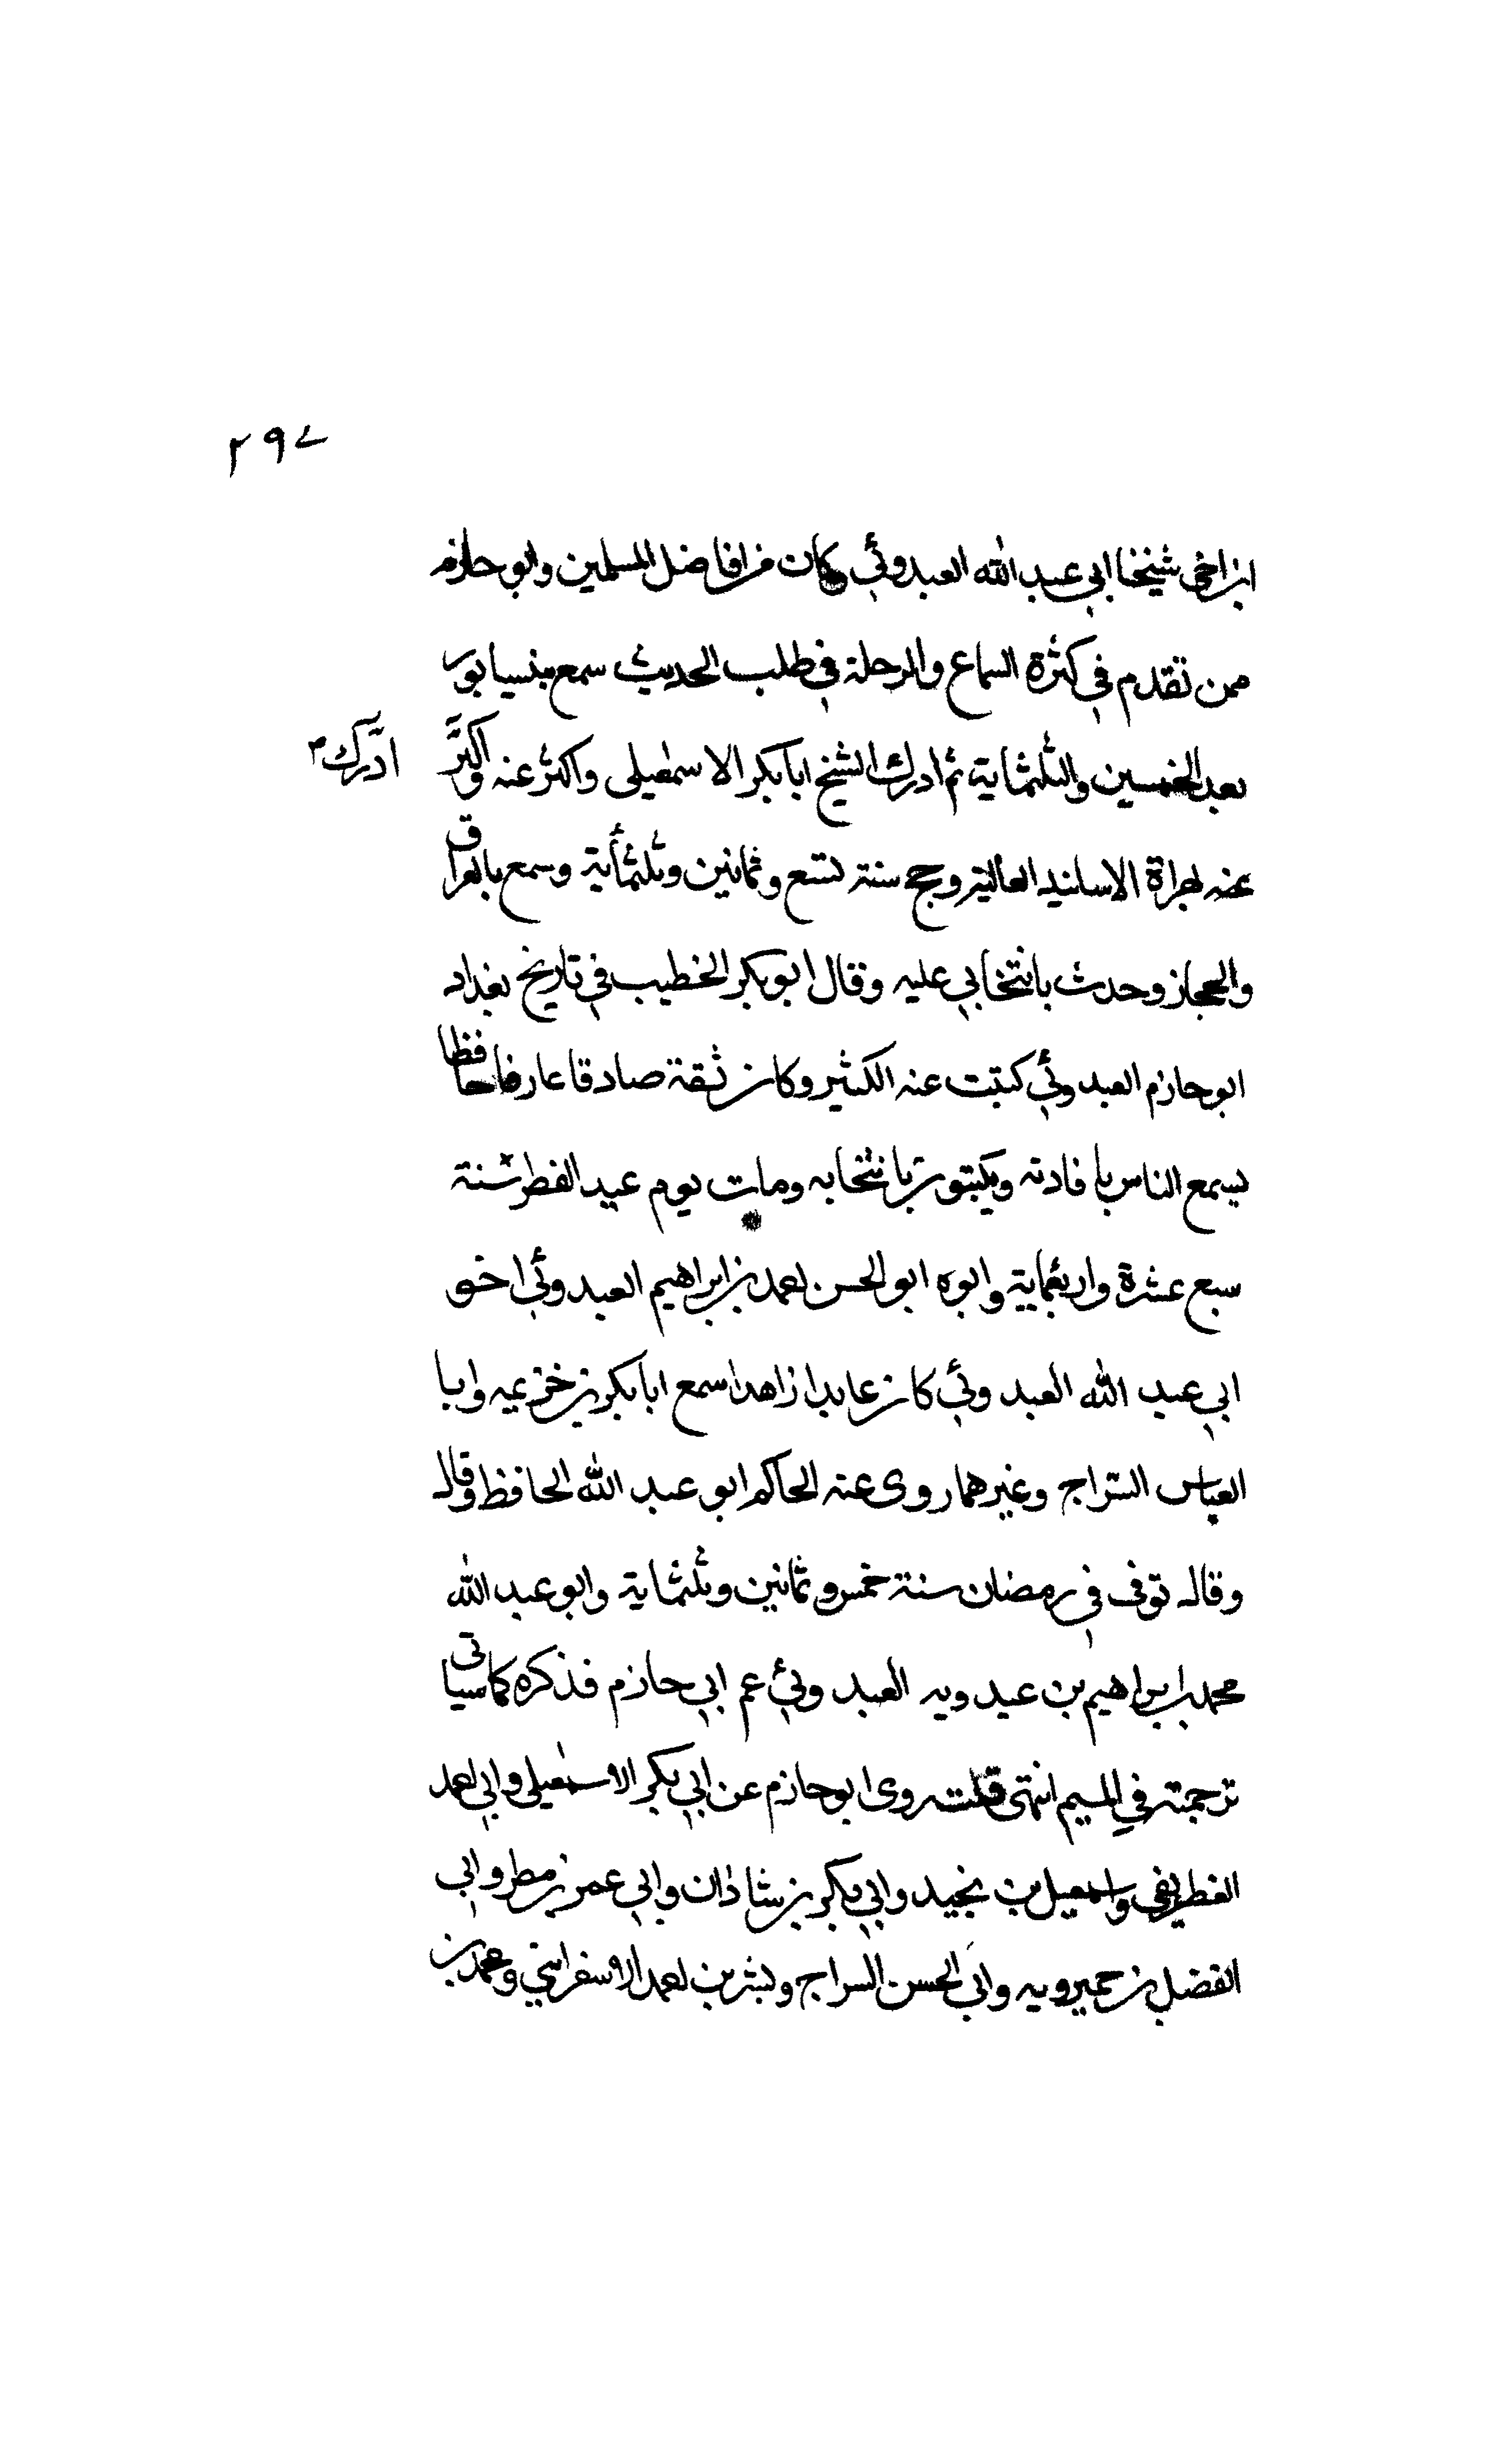 ٢٩٧
ابن اخي شيخنا ابي عبد الله العبدوئي وكان من افاضل المسلمين وابو حازم
ممن تقدم في كثرة السماع والرحلة في طلب الحديث سمع بنيسابور
بعد الخمسين والثلثماية ثم ادرك الشيخ ابا بكر الاسمعيلى واكثر عنه واكثر
ادرك
عنه بهراة الاسانيد العالية وحج سنة تسع وثمانين وثلثمأية وسمع بالعراق
والحجاز وحدث بانتخابي عليه وقال ابو بكر الخطيب في تاريخ بغداد
ابو حازم العبدوئي كتبت عنه الكثير وكان ثقة صادقا عارفا حافظا
يسمع الناس بافادته ويكتبون بانتخابه ومات يوم عيد الفطر سنة
سبع عشرة واربعماية وابوه ابو الحسن احمد بن ابراهيم العبدوئي اخو
ابي عبد الله العبدوئي كان عابدا زاهدا سمع ابا بكر بن خزيمه وابا
العباس السراج وغيرهما روى عنه الحاكم ابو عبد الله الحافظ وقال
وقال توفى في رمضان سنة خمس وثمانين وثلثماية وابو عبد الله
محمد بن ابراهيم بن عبدويه العبدوئي عم ابي حازم فذكره كما سياتى
ترجمته في الميم انتهى قلت روى ابو حازم عن ابي بكر الاسمعيلى وابي احمد
الغطريفى واسمعيل بن نجيد وابي بكر بن شاذان وابي عمر بن مطر وابي
الفضل بن حميرويه وابي الحسن السراج وبشر بن احمد الاسفرايني ومحمد بن